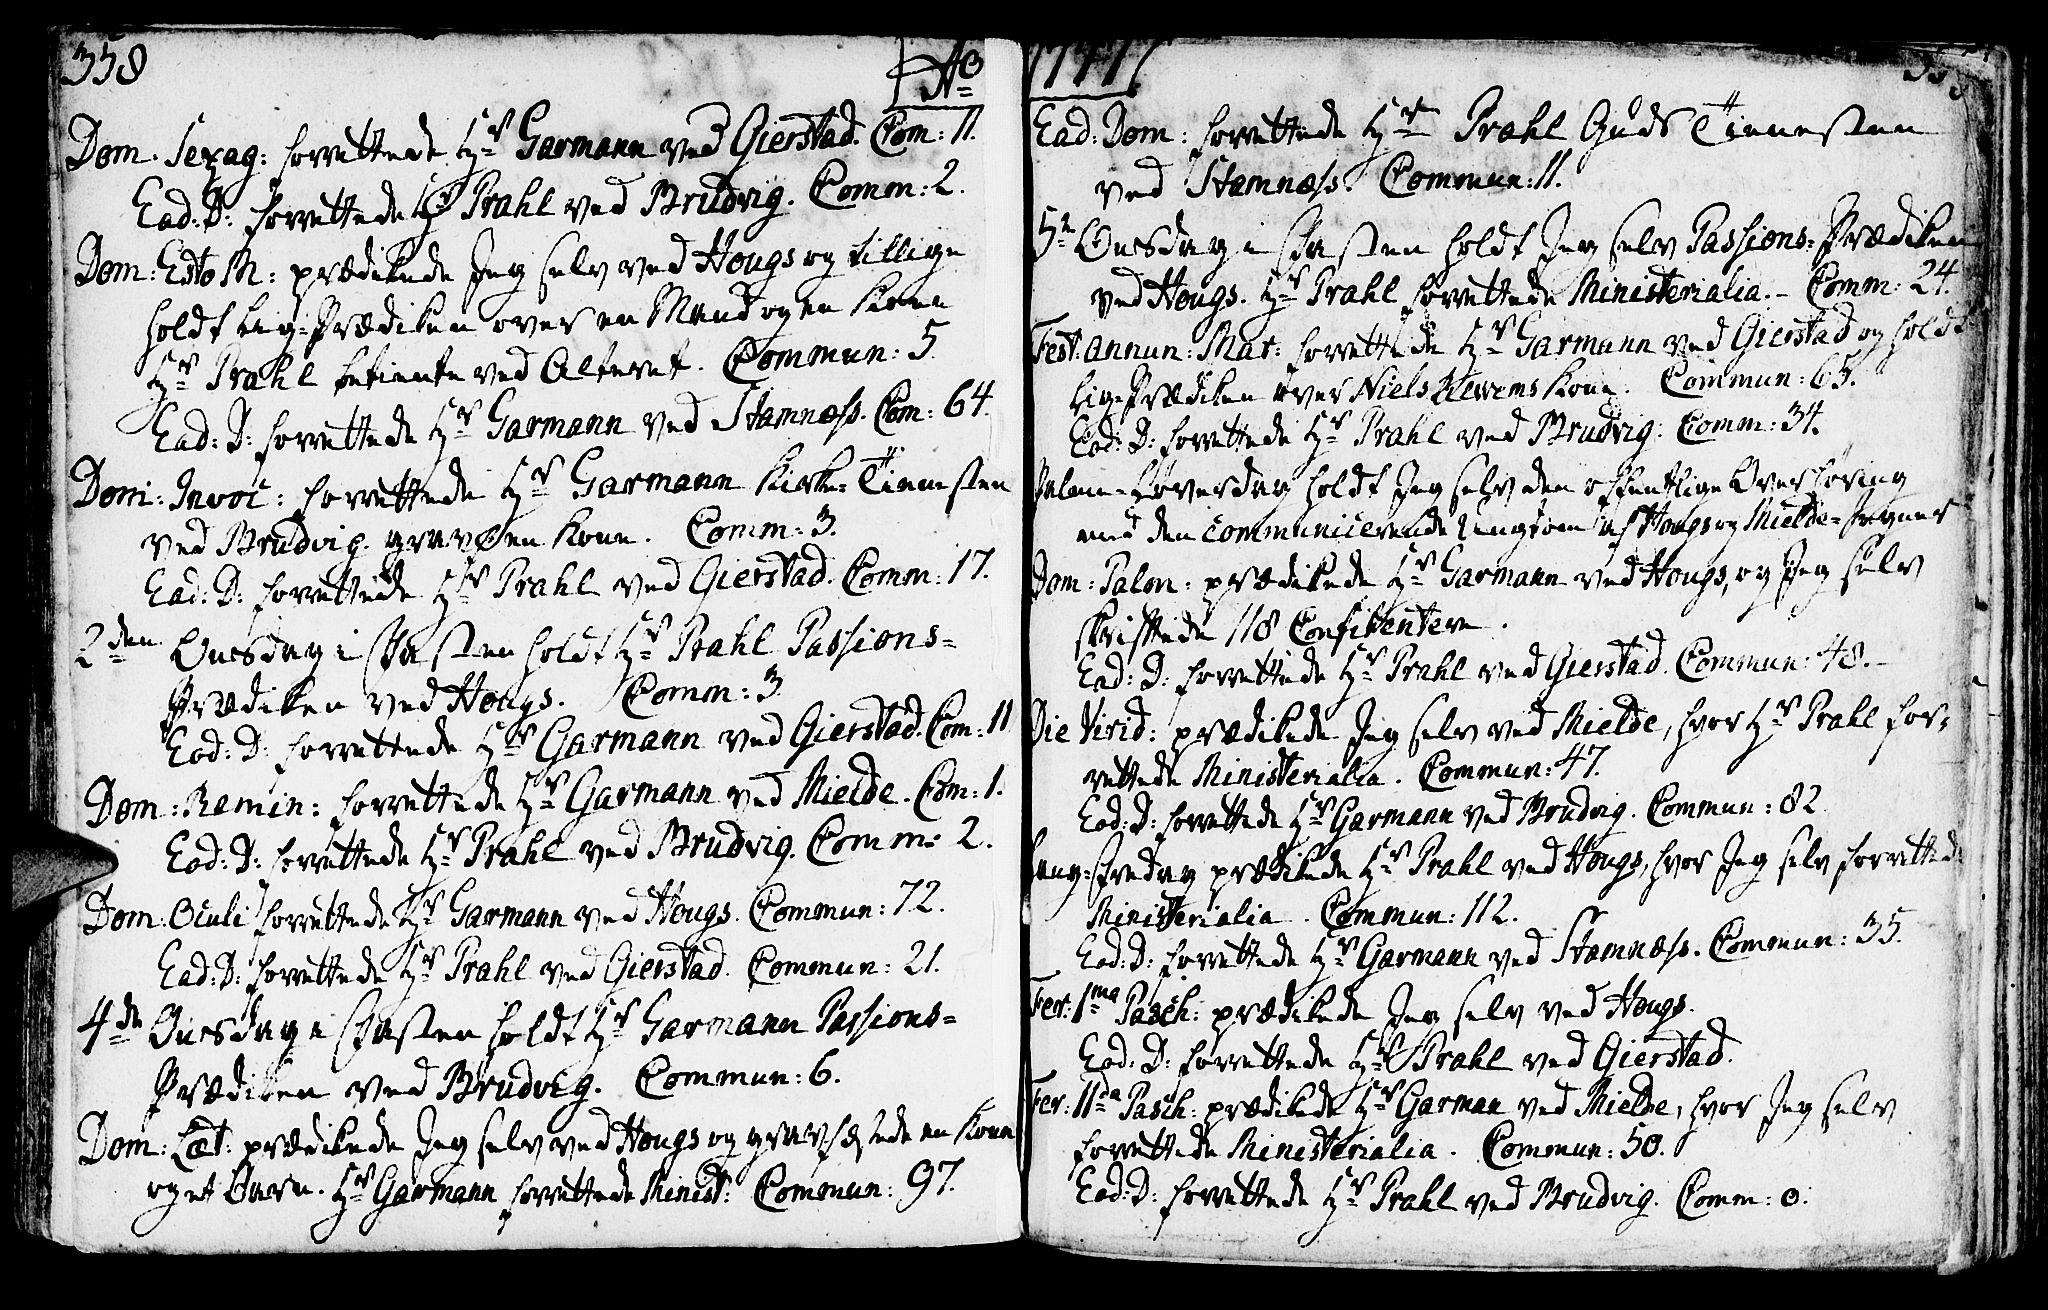 358
Ao
Dom. Sexag: forrettede Hr Garmann ved Gierstad. Com: 11.
Ead: D: forrettede Hr Prahl ved Brudvig. Comm: 2.
Dom: Esto M: prædikede Jeg selv ved Hougs og tillige
holdt Lig-Prædiken over en Mand og en Kone
Hr Prahl betiente ved Alteret. Commun: 5.
Ead: D: forrettede Hr Garmann ved Stamnæss. Com: 64.
Domi: Invoc: forrettede Hr Garmann Kirke-Tienesten
ved Brudvig. grav. en Kone. Comm: 3.
Ead: D: forrettede Hr Prahl ved Gierstad. Comm: 17.
2den Onsdag i Fasten holdt Hr Prahl Passions-
Prædiken ved Hougs. Comm: 3
Eod: D: forrettede Hr Garmann ved Gierstad. Com: 11
Dom: Remin: forrettede Hr Garmann ved Mielde. Com: 1.
Eod: D: forrettede Hr Prahl ved Brudvig. Comm: 2.
Dom: Oculi forrettede Hr Garmann ved Hougs. Commun: 72.
Ead: D: forrettede Hr Prahl ved Gierstad. Commun: 21.
4de Onsdag i Fasten holdt Hr Garmann Passions-
Prædiken ved Brudvig. Commun: 6.
Dom: Læt: prædikede Jeg selv ved Hougs og gravfæstede en Kone
og et Barn. Hr Garmann forrettede Minist: Commun: 97.
Ead: Dom: forrettede Hr Prahl Guds Tienesten
ved Stamnæss. Commun: 11.
5te Onsdag i Fasten holdt Jeg selv Passions-Prædiken
ved Hougs. Hr Prahl forrettede Ministerialia. - Comm: 24.
Fest: Annun: Mar: forrettede Hr Garmann ved Gierstad og holdt
Lig-Prædiken over Niels Kone. Commun: 65.
Eod: D: forrettede Hr Prahl ved Brudvig: Comm: 34.
Palme-Løverdag holdt Jeg selv den offentlige Overhøring
med den communicerende Ungdom af Hougs og Mielde-Sogner
Dom: Palm: prædikede Hr Garmann ved Hougs, og Jeg selv
skriftede 118 Confitentere.
Ead: D: forrettede Hr Prahl ved Gierstad. Commun: 48. -
Die Virid: prædikede Jeg selv ved Mielde, hvor Hr Prahl for-
rettede Ministerialia. Commun: 47.
Eod: D: forrettede Hr Garmann ved Brudvig. Commun: 82
Lang-Fredag prædikede Hr Prahl ved Hougs, hvor Jeg selv forrettede
Ministerialia. Commun: 112.
Eod: D: forrettede Hr Garmann ved Stamnæss. Commun: 35.
Fer: 1ma Pasch: prædikede Jeg selv ved Hougs.
Eod: D: forrettede Hr Prahl ved Gierstad.
Fer: 11da Pasch: prædikede Hr Garman ved Mielde, hvor Jeg selv
forrettede Ministerialia. Commun: 50.
Eod: D: forrettede Hr Prahl ved Brudvig. Comm: 0.